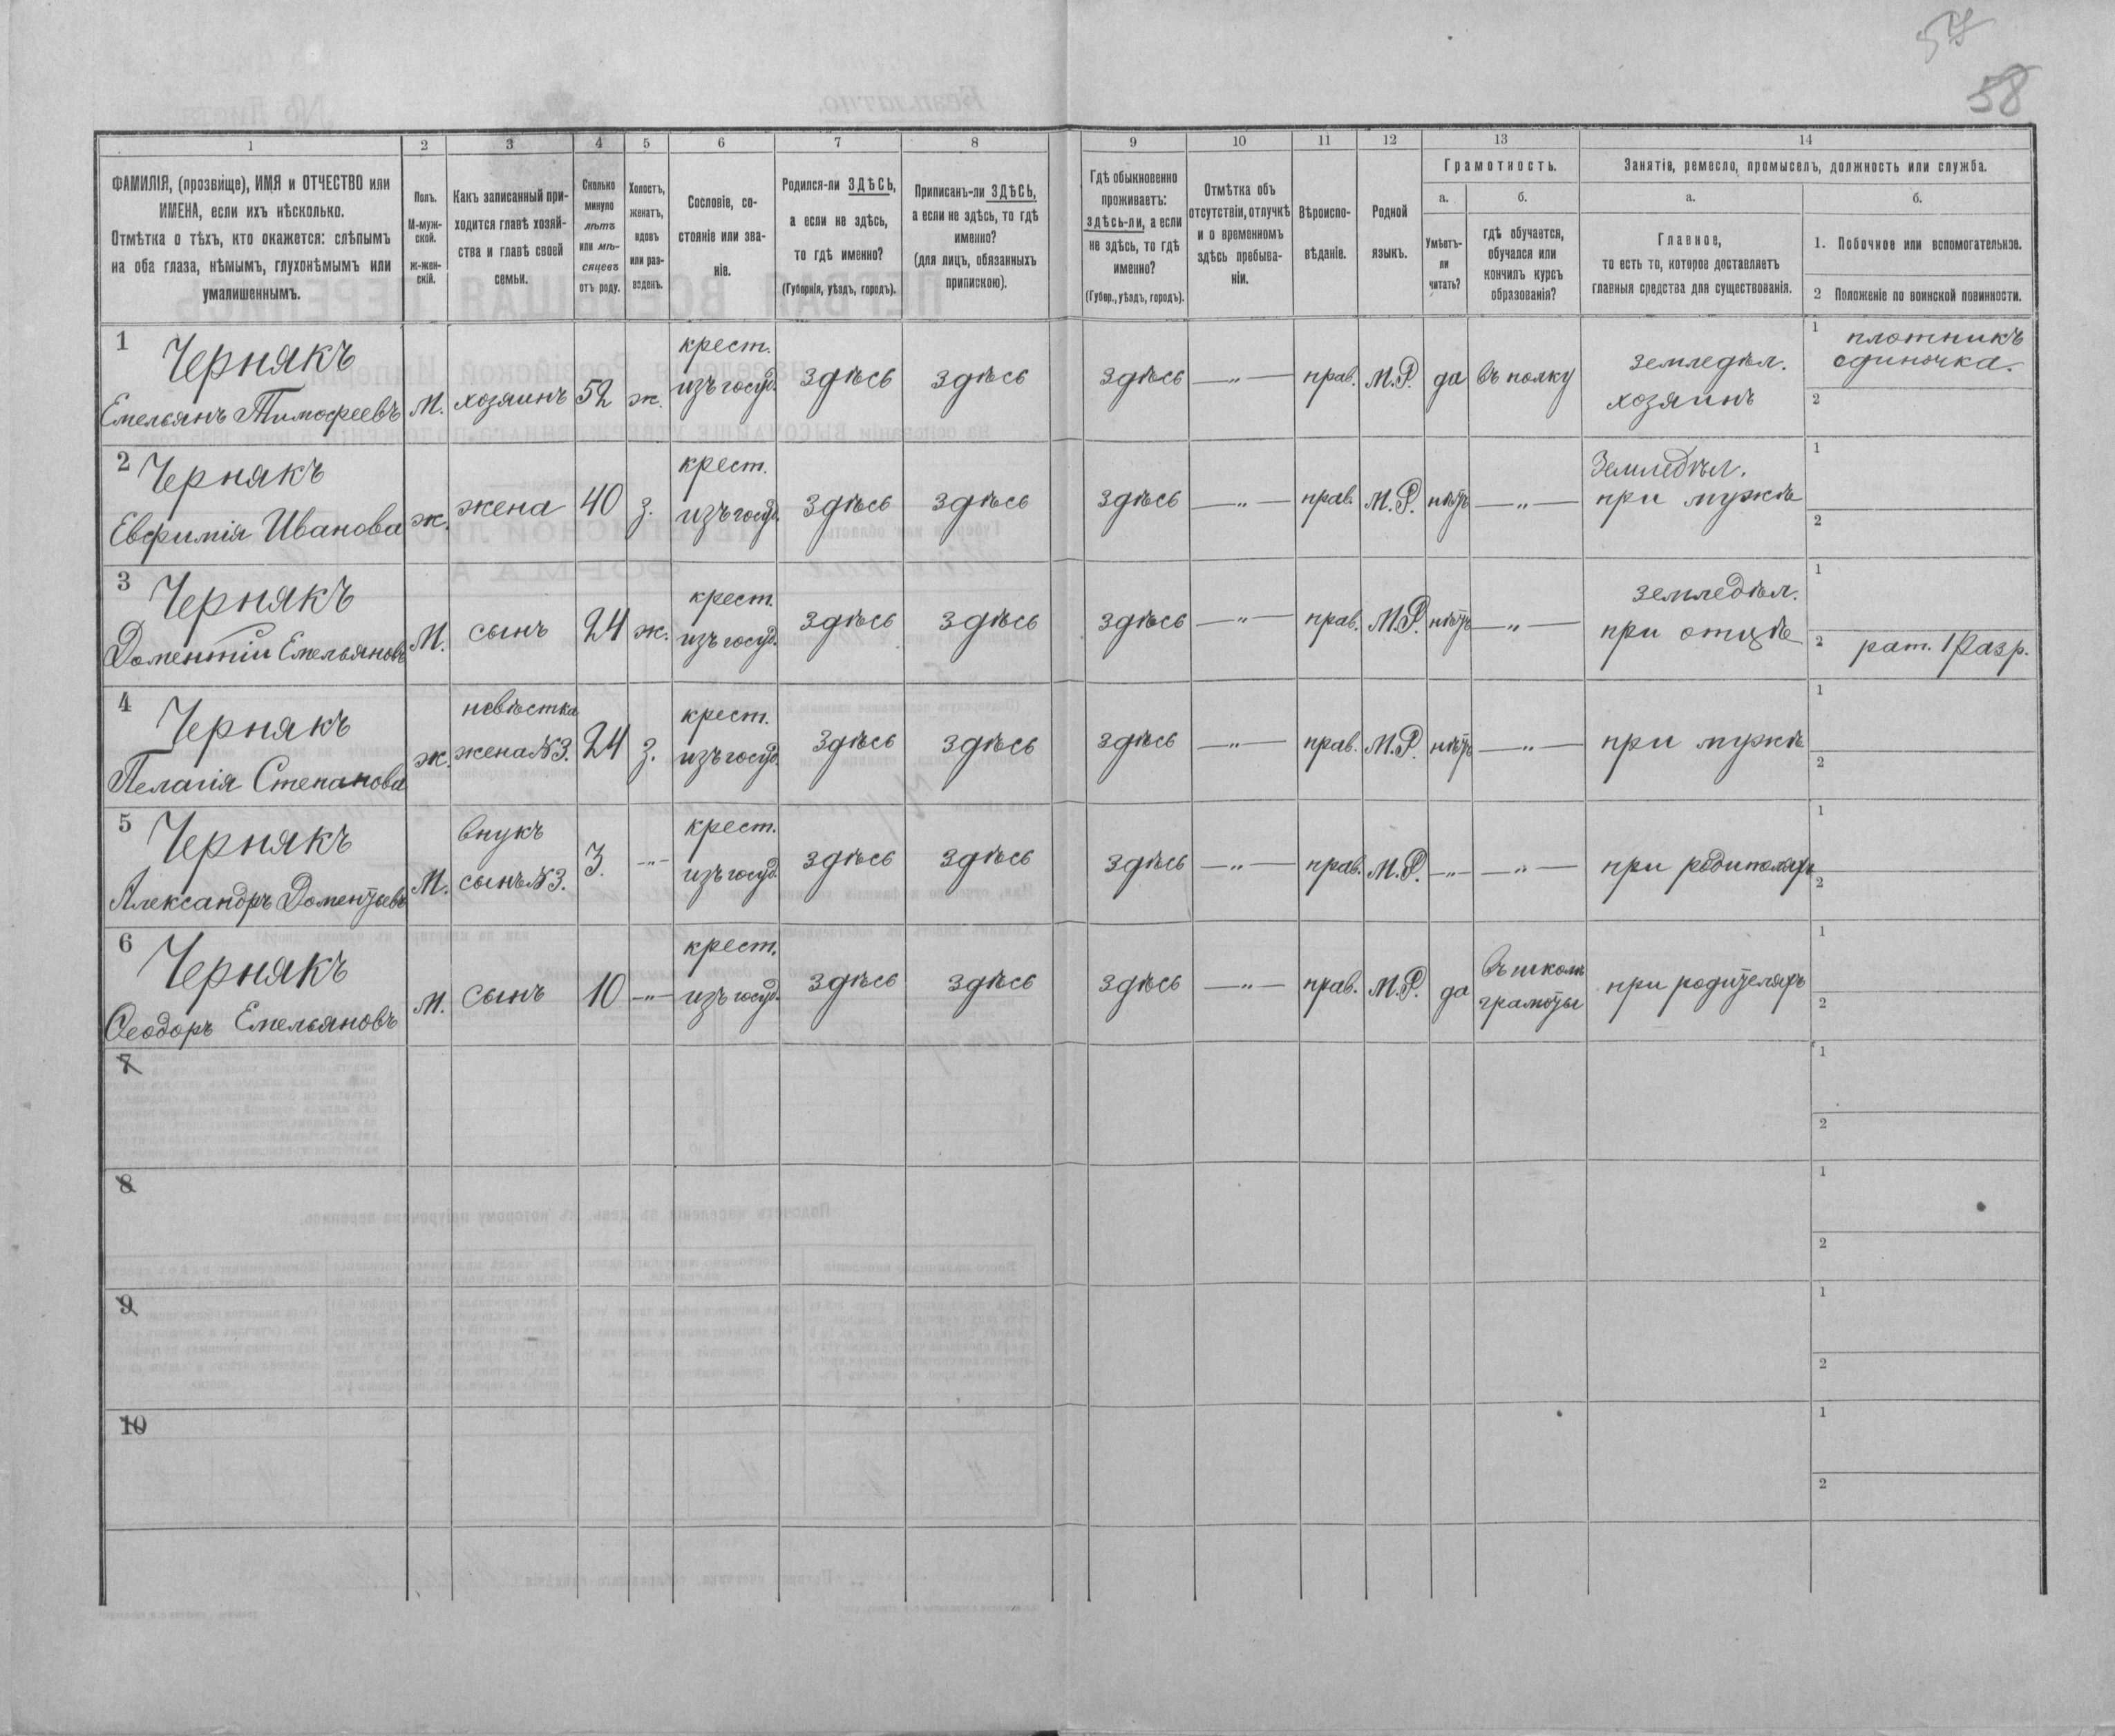 58
1 2 3 4 5 6 7 8 9 10 11 12 13 14
ФАМИЛІЯ, (прозвище), ИМЯ и ОТЧЕСТВО или
ИМЕНА, если ихъ нѣсколько.
Отмѣтка о тѣхъ, кто окажется: слѣпымъ
на оба глаза, нѣмымъ, глухонѣмымъ или
умалишеннымъ.
Полъ.
М-муж-
ской.
ж-жен-
скій.
Какъ записанный при-
ходится главѣ хозяй-
ства и главѣ своей
семьи.
Сколько
минуло
лѣтъ
или мѣ-
сяцевъ
отъ роду.
Холостъ,
женатъ,
вдовъ
или раз-
веденъ.
Сословіе, со-
стояніе или зва-
ніе.
Родился-ли ЗДѢСЬ,
а если не здѣсь,
то гдѣ именно?
(Губернія, уѣздъ, городъ).
Приписанъ-ли ЗДѢСЬ,
а если не здѣсь, то гдѣ
именно?
(для лицъ, обязанныхъ
припискою).
Гдѣ обыкновенно
проживаетъ:
здѣсь-ли, а если
не здѣсь, то гдѣ
именно?
(Губер., уѣздъ, городъ).
Отмѣтка объ
отсутствіи, отлучкѣ
и о временномъ
здѣсь пребыва-
ніи.
Вѣроиспо-
вѣданіе.
Родной
языкъ.
Грамотность.
а.
Умѣетъ-
ли
читать?
б.
гдѣ обучается,
обучался или
кончилъ курсъ
образованія?
Занятія, ремесло, промыселъ, должность или служба.
а.
Главное,
то есть то, которое доставляетъ
главныя средства для существованія.
б.
1. Побочное или вспомогательное.
2 Положеніе по воинской повинности.
1 Чернякъ
Емельянъ Тимофеевъ
М.
хозяинъ
52
ж.
крест.
изъ госуд.
здѣсь
здѣсь
здѣсь
—〃—
прав.
М.Р.
да
въ полку
земледѣл.
хозяинъ
1 плотникъ
одиночка.
2
2 Чернякъ
Евфимія Иванова
ж.
жена
40
з.
крест.
изъ госуд.
здѣсь
здѣсь
здѣсь
—〃—
прав.
М.Р.
нѣтъ
—〃—
Земледѣл.
при мужѣ
1
2
3 Чернякъ
Доментій Емельяновъ
М.
сынъ
24
ж.
крест.
изъ госуд.
здѣсь
здѣсь
здѣсь
—〃—
прав.
М.Р.
нѣтъ
—〃—
земледѣл.
при отцѣ
1
2 рат. 1 Разр.
4 Чернякъ
Пелагія Степанова
ж.
невѣстка
жена №3.
24
з.
крест.
изъ госуд.
здѣсь
здѣсь
здѣсь
—〃—
прав.
М.Р.
нѣтъ
—〃—
при мужѣ
1
2
5 Чернякъ
Александръ Доментьевъ
М.
внукъ
сынъ №3.
3.
—〃—
крест.
изъ госуд.
здѣсь
здѣсь
здѣсь
—〃—
прав.
М.Р.
—〃—
—〃—
при родителяхъ
1
2
6 Чернякъ
Ѳеодоръ Емельяновъ
М.
сынъ
10
—〃—
крест.
изъ госуд.
здѣсь
здѣсь
здѣсь
—〃—
прав.
М.Р.
да
въ школѣ
грамоты
при родителяхъ
1
2
7
1
2
8
1
2
9
1
2
10
1
2